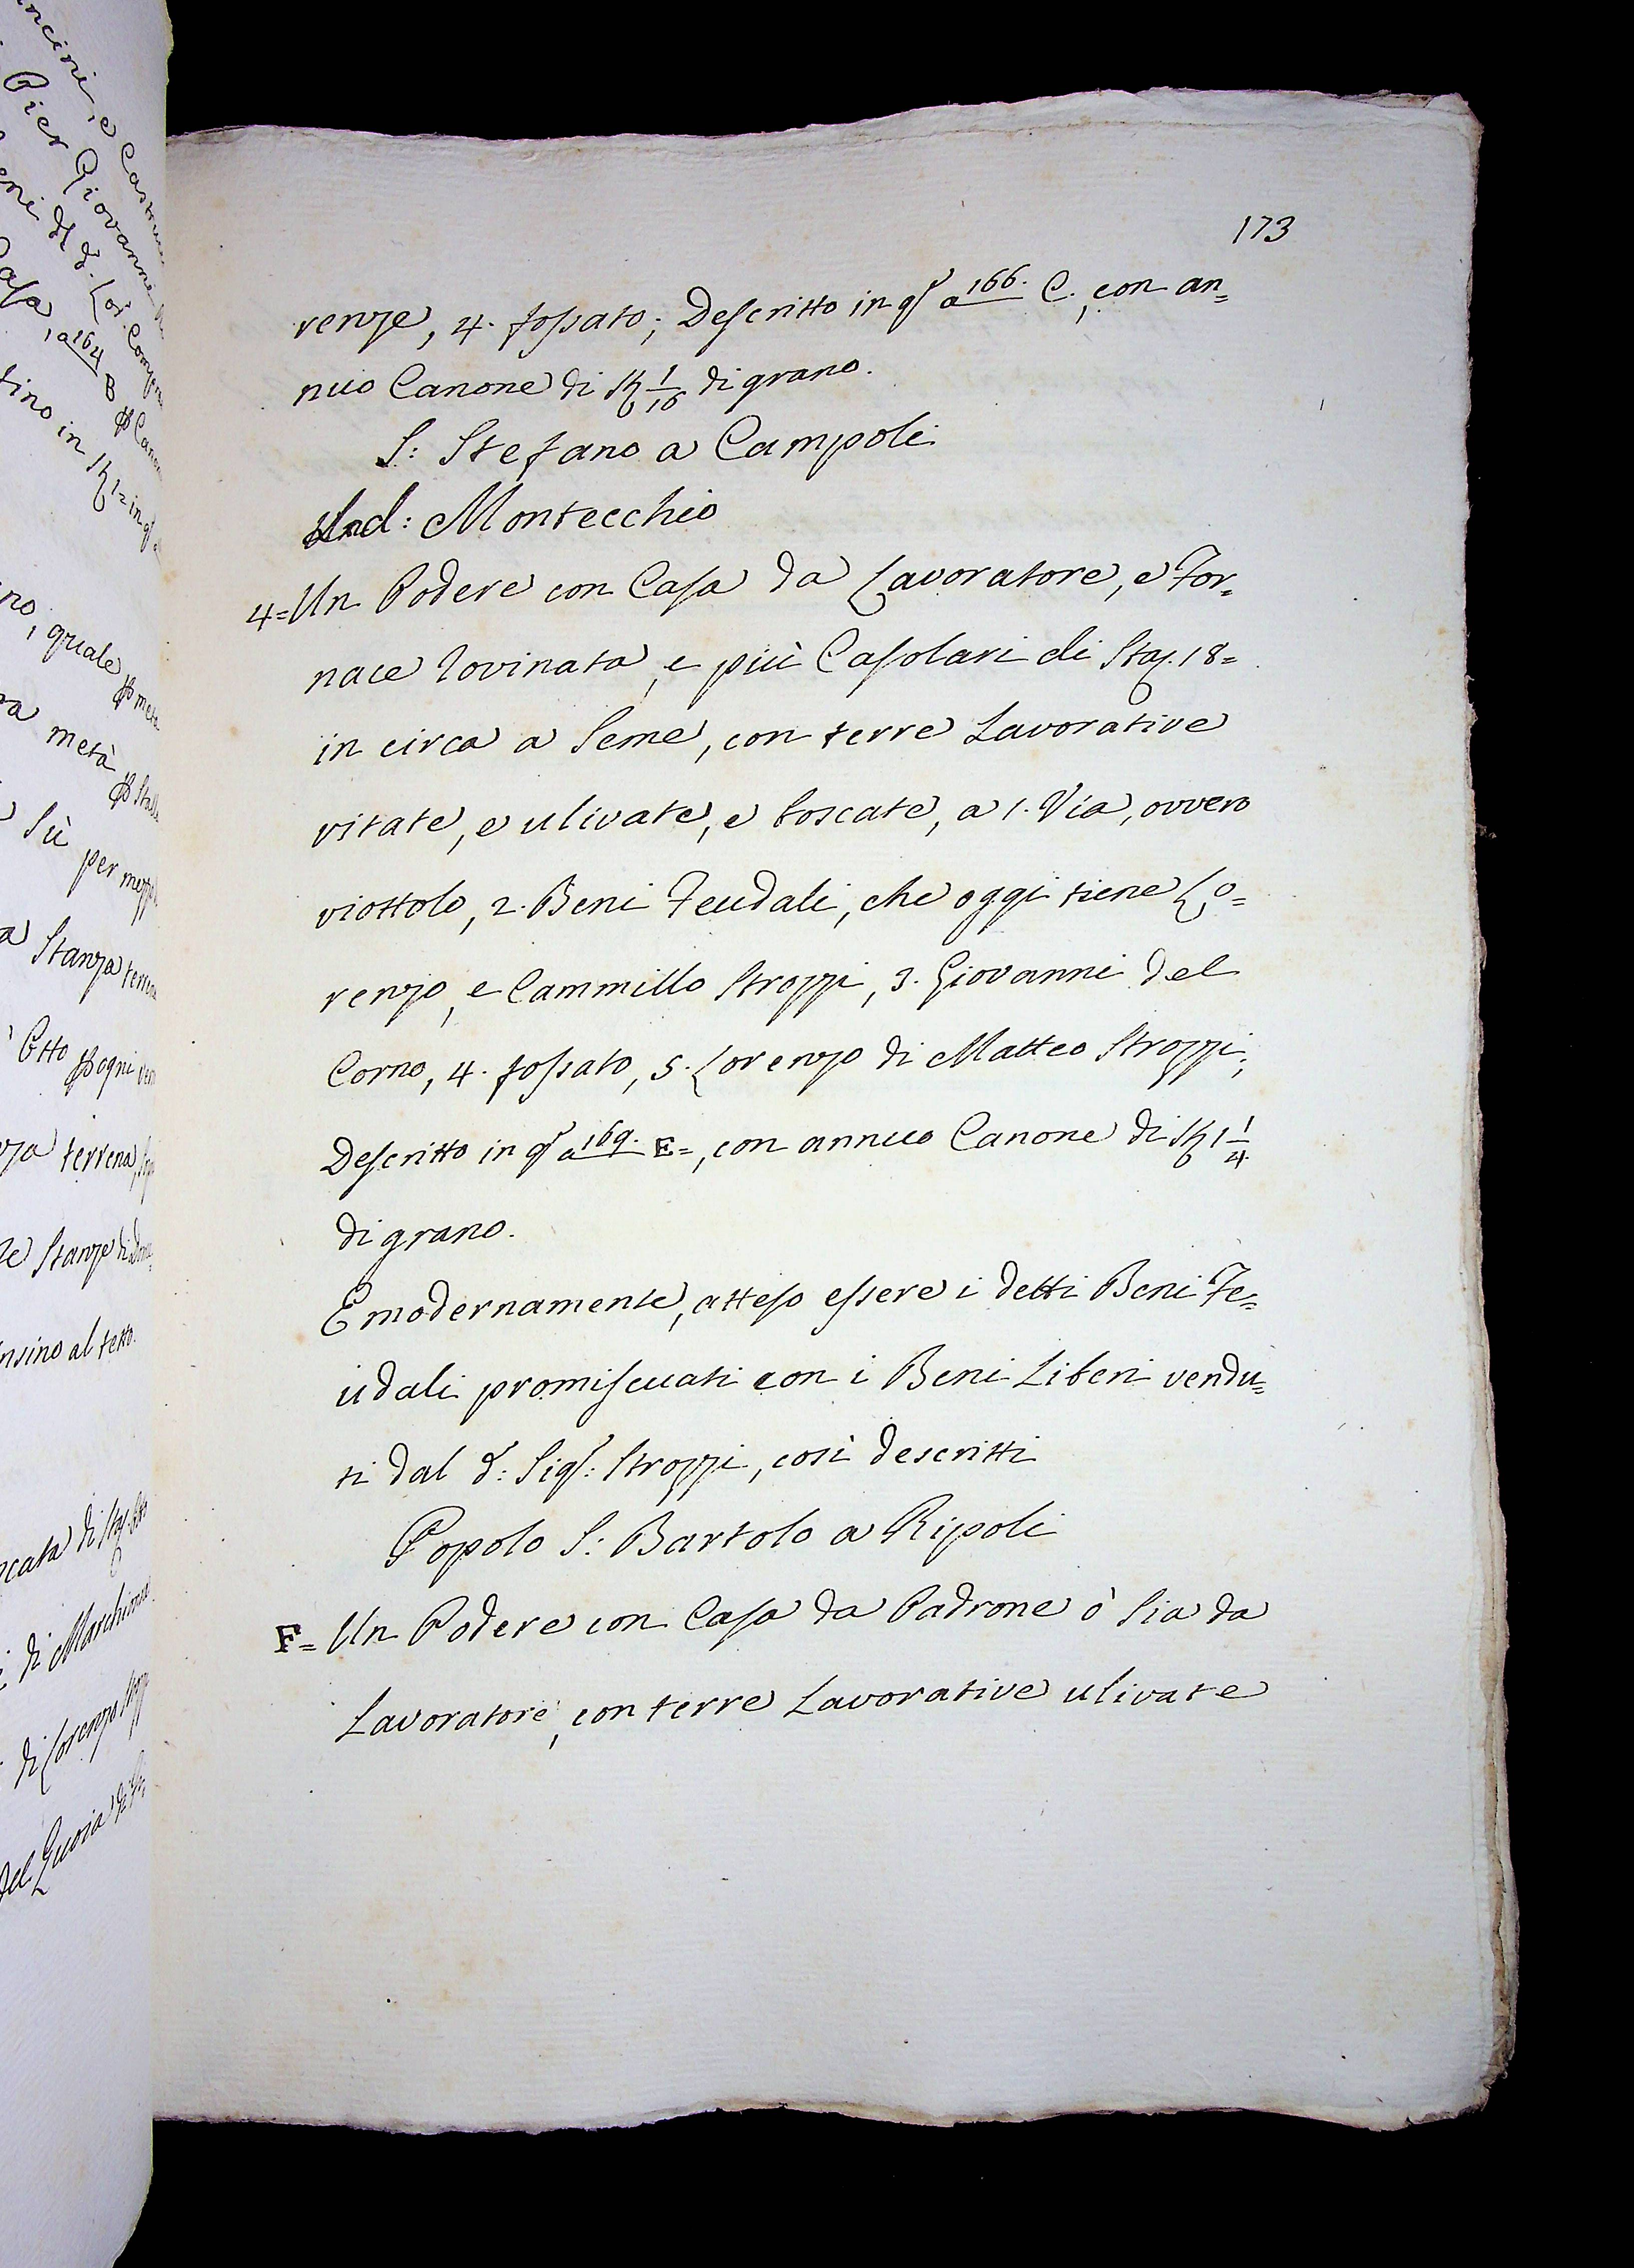 173
renze, 4. fossato; Descritto in q.º a 166. C., con an=
nuo Canone di St. 1/16 di grano.
S: Stefano a Campoli
Lu.d: Montecchio
4= Un Podere con Casa da Lavoratore, e For=
nace rovinata, e più Casolari di Staj. 18=
in circa a Seme, con terre Lavorative
vitate, e ulivate, e boscate, a 1. Via, ovvero
viottolo, 2. Beni Feudali, che oggi tiene Lo=
renzo, e Cammillo Strozzi, 3. Giovanni del
Corno, 4. fossato, 5. Lorenzo di Matteo Strozzi;
Descritto in q.º a 169. E=, con annuo Canone di St. 1 1/4
di grano.
E modernamente, atteso essere i detti Beni Fe=
udali promiscuati con i Beni Liberi vendu=
ti dal d: Sig.: Strozzi, così descritti
Popolo S: Bartolo a Ripoli
F= Un Podere con Casa da Padrone ò sia da
Lavoratore, con terre Lavorative ulivate
Pier Giovanni
Casa, a 164 B
quale
metà
sù per mezzo
Stanza terrena
ogni
terrena
Stanze di
insino al tetto.
di Marchionne
di Lorenzo